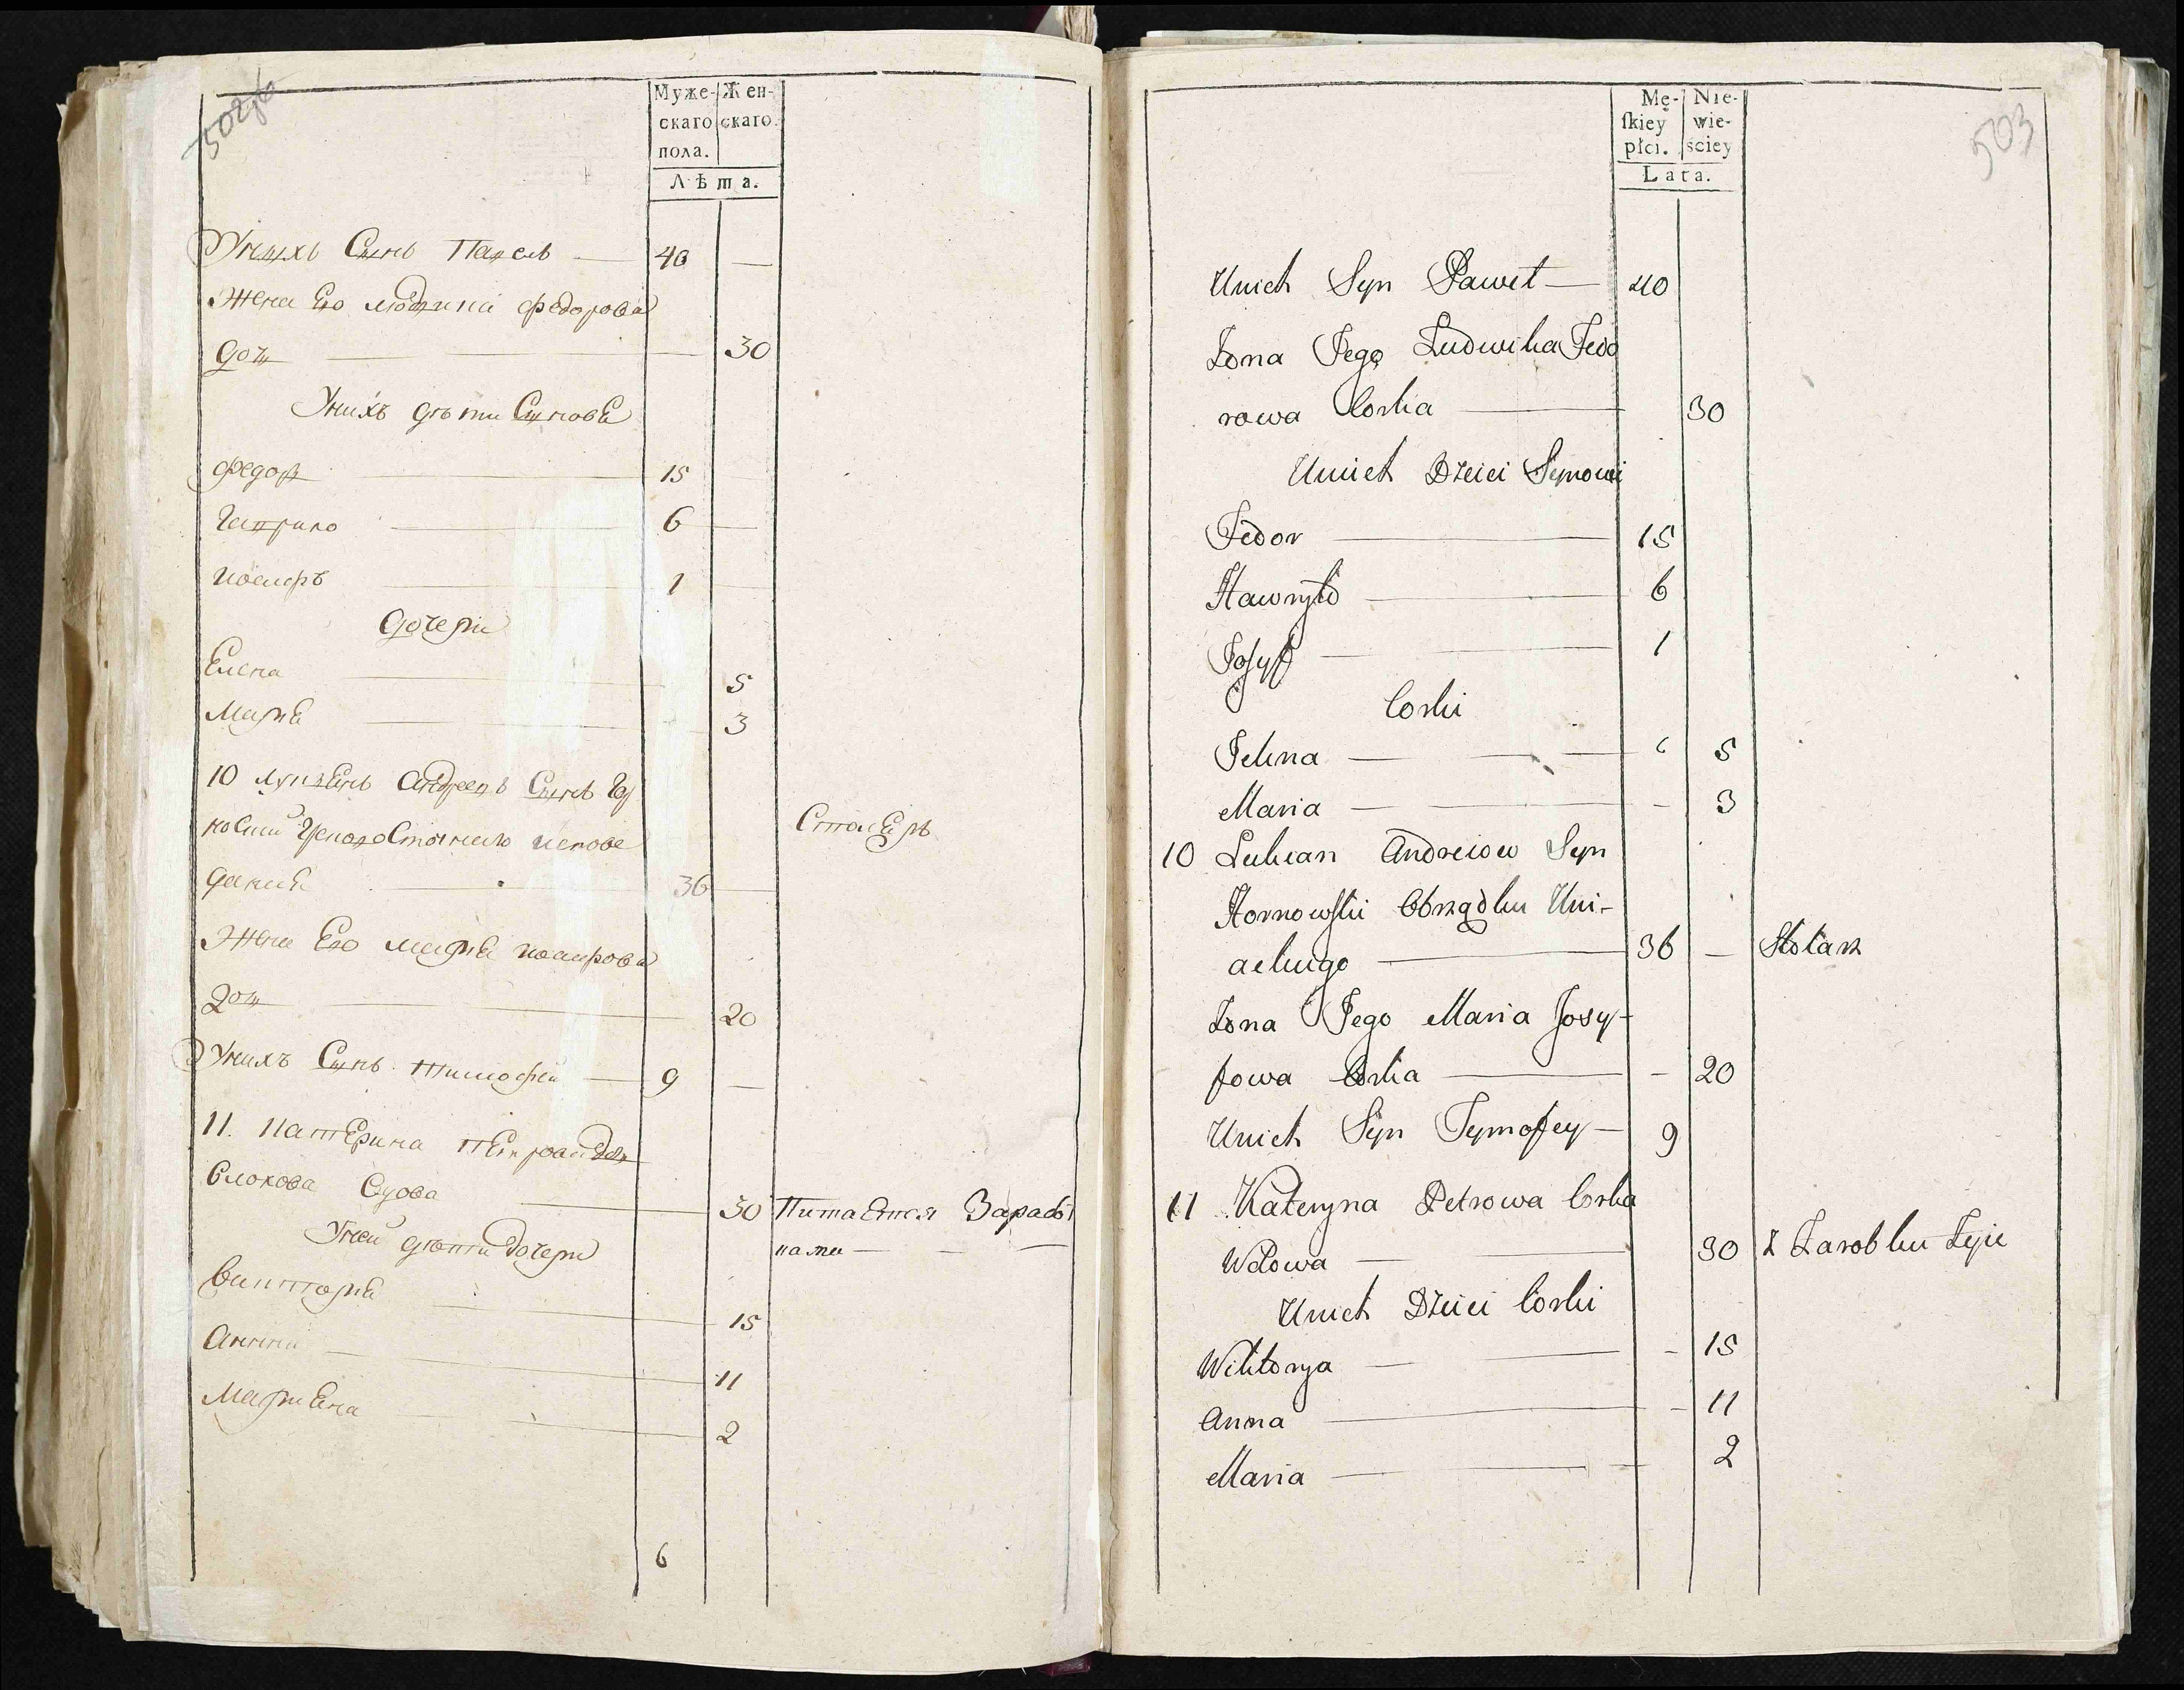 Муже- Жен-
скаго скаго.
пола.
Лѣта.
Унихъ Сынъ Павелъ — 40 —
Жена Его людвика Федорова
дочь — 30
Унихъ дѣти Сыновѣ
Федоръ — 15
Гаврило — 6 —
иосифъ — 1
Дочери
Елена — 5
Мария — 3
10 лукянъ Андреевъ Сынъ Гор
новский
Столяръ
дания — 36 —
Жена Его мария иосифова
дочь — 20
Унихъ Сынъ тимофей — 9 —
11. Катерина Петрова дочь
Вдова — 30 Питается Заработ
ками —
Уней дѣти дочери
Виктория — 15
Анна — 11
Марияна — 2
6
503
Mę- Nie-
ſkiey wie-
płci. ściey
Lata.
Unich Syn Paweł — 40
Zona Jego Ludwika Fedo
rowa Corka — 30
Unich Dzieci Synowi
Fedor — 15
Hawryło — 6
Josyf — 1
Corki
Jelena — 5
Maria — 3
10 Lukian Andreiow Syn
Hornowſki Obrządku Uni-
ackiego — 36 — Stolarz
Zona Jego Maria Josy-
fowa Corka — 20
Unich Syn Tymofey — 9
11 Kateryna Petrowa Corka
Wdowa — 30 Z Zarobku Zyie
Unich Dzieci Corki
Wiktorya — 15
Anna — 11
Maria — 2